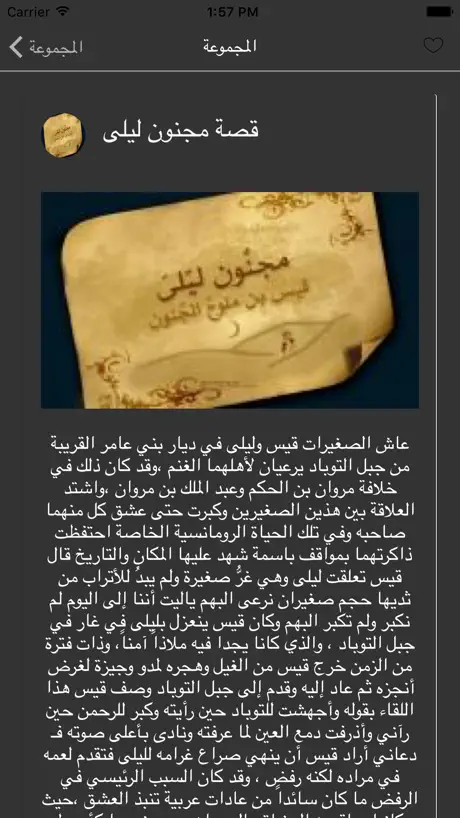 Carrier 1:57 PM
المجموعة
المجموعة
قصة مجنون ليلى
مجنُون ليَلىَ
قيس بن ملوح المجنون
عاش الصغيرات قيس وليلى في ديار بني عامر القريبة
من جبل التوباد يرعيان لأهلهما الغنم ،وقد كان ذلك في
خلافة مروان بن الحكم وعبد الملك بن مروان ،واشتد
العلاقة بين هذين الصغيرين وكبرت حتى عشق كل منهما
صاحبه وفي تلك الحياة الرومانسية الخاصة احتفظت
ذاكرتهما بمواقف باسمة شهد عليها المكان والتاريخ قال
قيس تعلقت ليلى وهي غرُّ صغيرة ولم يبدُ للأتراب من
ثديها حجم صغيران نرعى البهم ياليت أننا إلى اليوم لم
نكبر ولم تكبر البهم وكان قيس ينعزل بليلى في غار في
جبل التوباد ، والذي كانا يجدا فيه ملاذاً آمناً، وذات فترة
من الزمن خرج قيس من الغيل وهجره لمدو وجيزة لغرض
أنجزه ثم عاد إليه وقدم إلى جبل التوباد وصف قيس هذا
اللقاء بقوله وأجهشت للتوباد حين رأيته وكبر للرحمن حين
رآني وأذرفت دمع العين لما عرفته ونادى بأعلى صوته فـ
دعاني أراد قيس أن ينهي صراع غرامه لليلى فتقدم لعمه
في مراده لكنه رفض ، وقد كان السبب الرئيسي في
الرفض ما كان سائداً من عادات عربية تنبذ العشق ،حيث